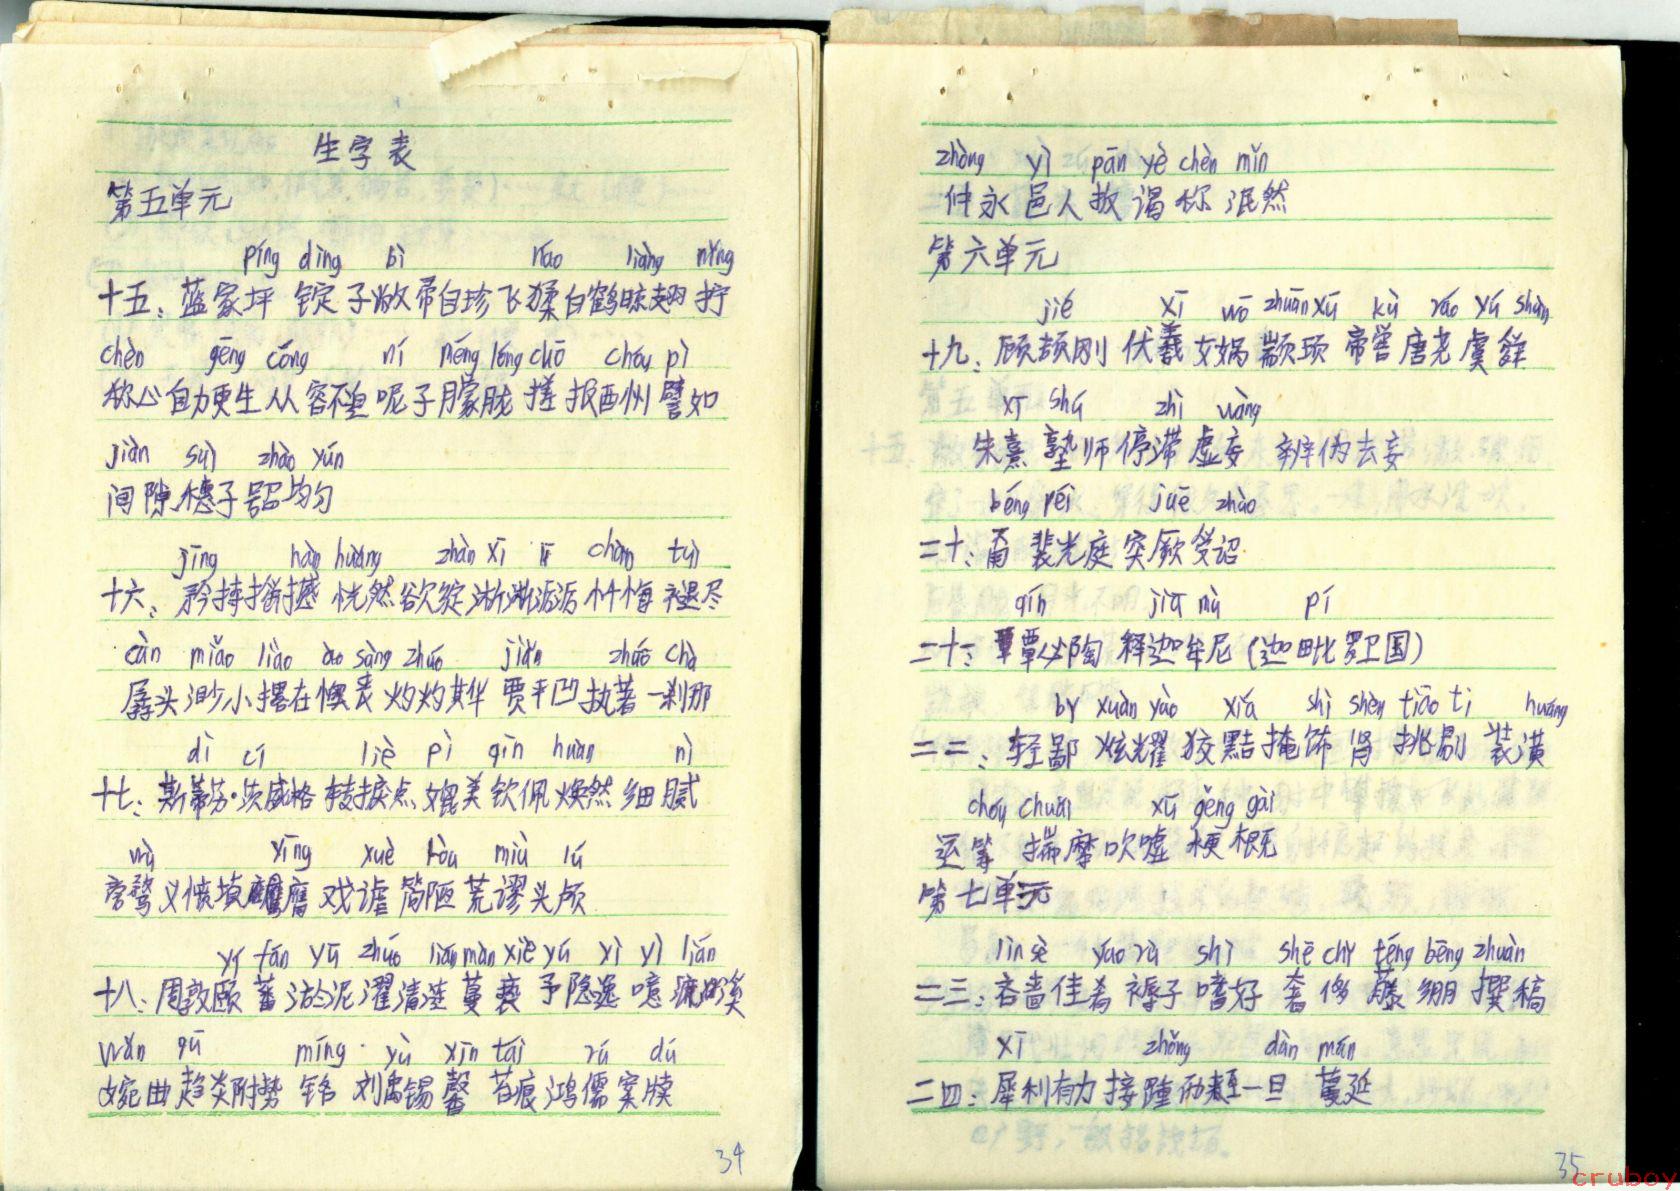 生字表
第五单元
píng dìng bì náo liàng nǐng
十五：蓝家坪 锭子 敝帚自珍 飞猱 白鹤晾翅 拧
chèn gēng cóng ní méng lóng chō chóu pì
称心 自力更生 从容不迫 呢子 朦胧 搓 报酬 譬如
jiàn suì zhào yún
间隙 穗子 号召 均匀
jīng hàn huàng zhàn xī chàn tuì
十六：矜持 撼 恍然 欲绽 淅淅沥沥 忏悔 褪尽
càn miǎo liào ào sàng zhuó jiǎ zhuó chà
孱头 渺小 撂在 懊丧 灼灼其华 贾平凹 执著 一刹那
dì cí liè pì qīn huàn nì
十七：斯蒂芬·茨威格 转捩点 媲美 钦佩 焕然 细腻
wù yīng xuè lòu miù lú
旁骛 义愤填膺 戏谑 简陋 荒谬 头颅
yí fán yū zhuó lián màn xiè yú yì yī lián
十八：周敦颐 蕃 淤泥 濯清涟 蔓 亵 予 隐逸 噫 濂溪
wǎn qū míng yǔ xīn tái rú dú
婉曲 趋炎附势 铭 刘禹锡 馨 苔痕 鸿儒 案牍
34
zhòng yì pān yè chèn mǐn
仲永 邑人 扳 谒 称 泯然
第六单元
jié xī wō zhuān xū kù yáo yú shùn
十九：顾颉刚 伏羲 女娲 颛顼 帝喾 唐尧 虞舜
xī shú zhì wàng
朱熹 塾师 停滞 虚妄 辨伪去妄
péi jué zhào
二十：裴光庭 突厥 受诏
qín jiā mù pí
二十一：覃必陶 释迦牟尼（迦毗罗卫国）
bǐ xuàn yào xiá shì shèn tiāo tī huáng
二二：轻鄙 炫耀 狡黠 掩饰 肾 挑剔 装潢
chóu chuǎi xū gěng gài
运筹 揣摩 吹嘘 梗概
第七单元
lìn sè yáo rù shì shē chǐ téng bēng zhuàn
二三：吝啬 佳肴 褥子 嗜好 奢侈 藤 绷 撰稿
xī zhǒng dàn màn
二四：犀利 有力 接踵而至 一旦 蔓延
35
cruboy